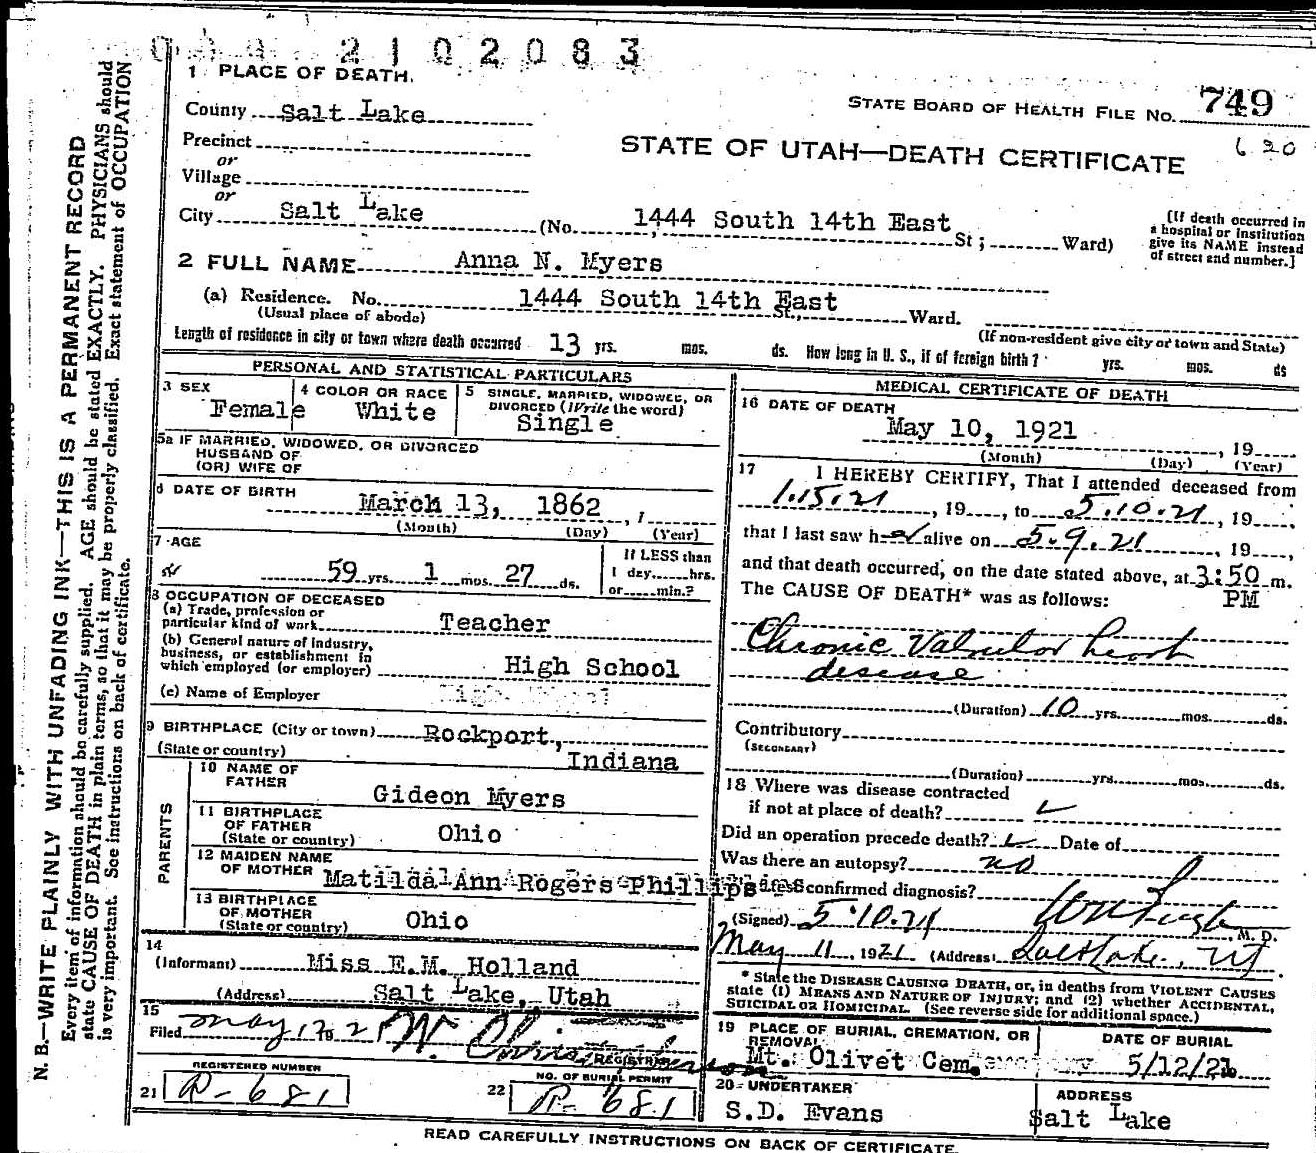 2102083
1 PLACE OF DEATH.
STATE BOARD OF HEALTH FILE NO. 749
County Salt Lake
620
Precinct
STATE OF UTAH—DEATH CERTIFICATE
or
Village
or
City Salt Lake (No. 1444 South 14th East St; Ward)
[If death occurred in
a hospital or institution
give its NAME instead
of street and number.]
2 FULL NAME Anna N. Myers
(a) Residence. No. 1444 South 14th East St., Ward.
(Usual place of abode)
(If non-resident give city or town and State)
Length of residence in city or town where death occurred 13 yrs. mos. ds. How long in U. S., if of foreign birth? yrs. mos. ds
PERSONAL AND STATISTICAL PARTICULARS
3 SEX
Female
4 COLOR OR RACE
White
5 SINGLE, MARRIED, WIDOWED, OR
DIVORCED (Write the word)
Single
5a IF MARRIED, WIDOWED, OR DIVORCED
HUSBAND OF
(OR) WIFE OF
6 DATE OF BIRTH
March 13, 1862
(Month) (Day) (Year)
7 AGE
59 yrs. 1 mos. 27 ds.
If LESS than
1 day hrs.
or min.?
8 OCCUPATION OF DECEASED
(a) Trade, profession or
particular kind of work Teacher
(b) General nature of industry,
business, or establishment in
which employed (or employer) High School
(c) Name of Employer
9 BIRTHPLACE (City or town) Rockport,
(State or country) Indiana
PARENTS
10 NAME OF
FATHER
Gideon Myers
11 BIRTHPLACE
OF FATHER
(State or country) Ohio
12 MAIDEN NAME
OF MOTHER Matilda Ann Rogers Phillips
13 BIRTHPLACE
OF MOTHER
(State or country) Ohio
14
(Informant) Miss E.M. Holland
(Address) Salt Lake, Utah
15
Filed May 12 21 W.
REGISTRAR
REGISTERED NUMBER
21 R-681
NO. OF BURIAL PERMIT
22 R-681
MEDICAL CERTIFICATE OF DEATH
16 DATE OF DEATH
May 10, 1921 , 19
(Month) (Day) (Year)
17 I HEREBY CERTIFY, That I attended deceased from
1.15.21, 19, to 5.10.21, 19,
that I last saw her alive on 5.9.21, 19,
and that death occurred, on the date stated above, at 3:50 m.
PM
The CAUSE OF DEATH* was as follows:
Chronic Valvular heart
disease
(Duration) 10 yrs. mos. ds.
Contributory
(SECONDARY)
(Duration) yrs. mos. ds.
18 Where was disease contracted
if not at place of death?
Did an operation precede death? Date of
Was there an autopsy? no
confirmed diagnosis?
(Signed) 5.10.21 M. D.
May 11, 1921 (Address) Salt Lake, Ut
* State the DISEASE CAUSING DEATH, or, in deaths from VIOLENT CAUSES
state (1) MEANS AND NATURE OF INJURY; and (2) whether ACCIDENTAL,
SUICIDAL OR HOMICIDAL. (See reverse side for additional space.)
19 PLACE OF BURIAL, CREMATION, OR
REMOVAL
Mt. Olivet Cem.
DATE OF BURIAL
5/12/21
20 UNDERTAKER
S.D. Evans
ADDRESS
Salt Lake
READ CAREFULLY INSTRUCTIONS ON BACK OF CERTIFICATE.
N. B.—WRITE PLAINLY WITH UNFADING INK—THIS IS A PERMANENT RECORD
Every item of information should be carefully supplied. AGE should be stated EXACTLY. PHYSICIANS should
state CAUSE OF DEATH in plain terms, so that it may be properly classified. Exact statement of OCCUPATION
is very important. See instructions on back of certificate.